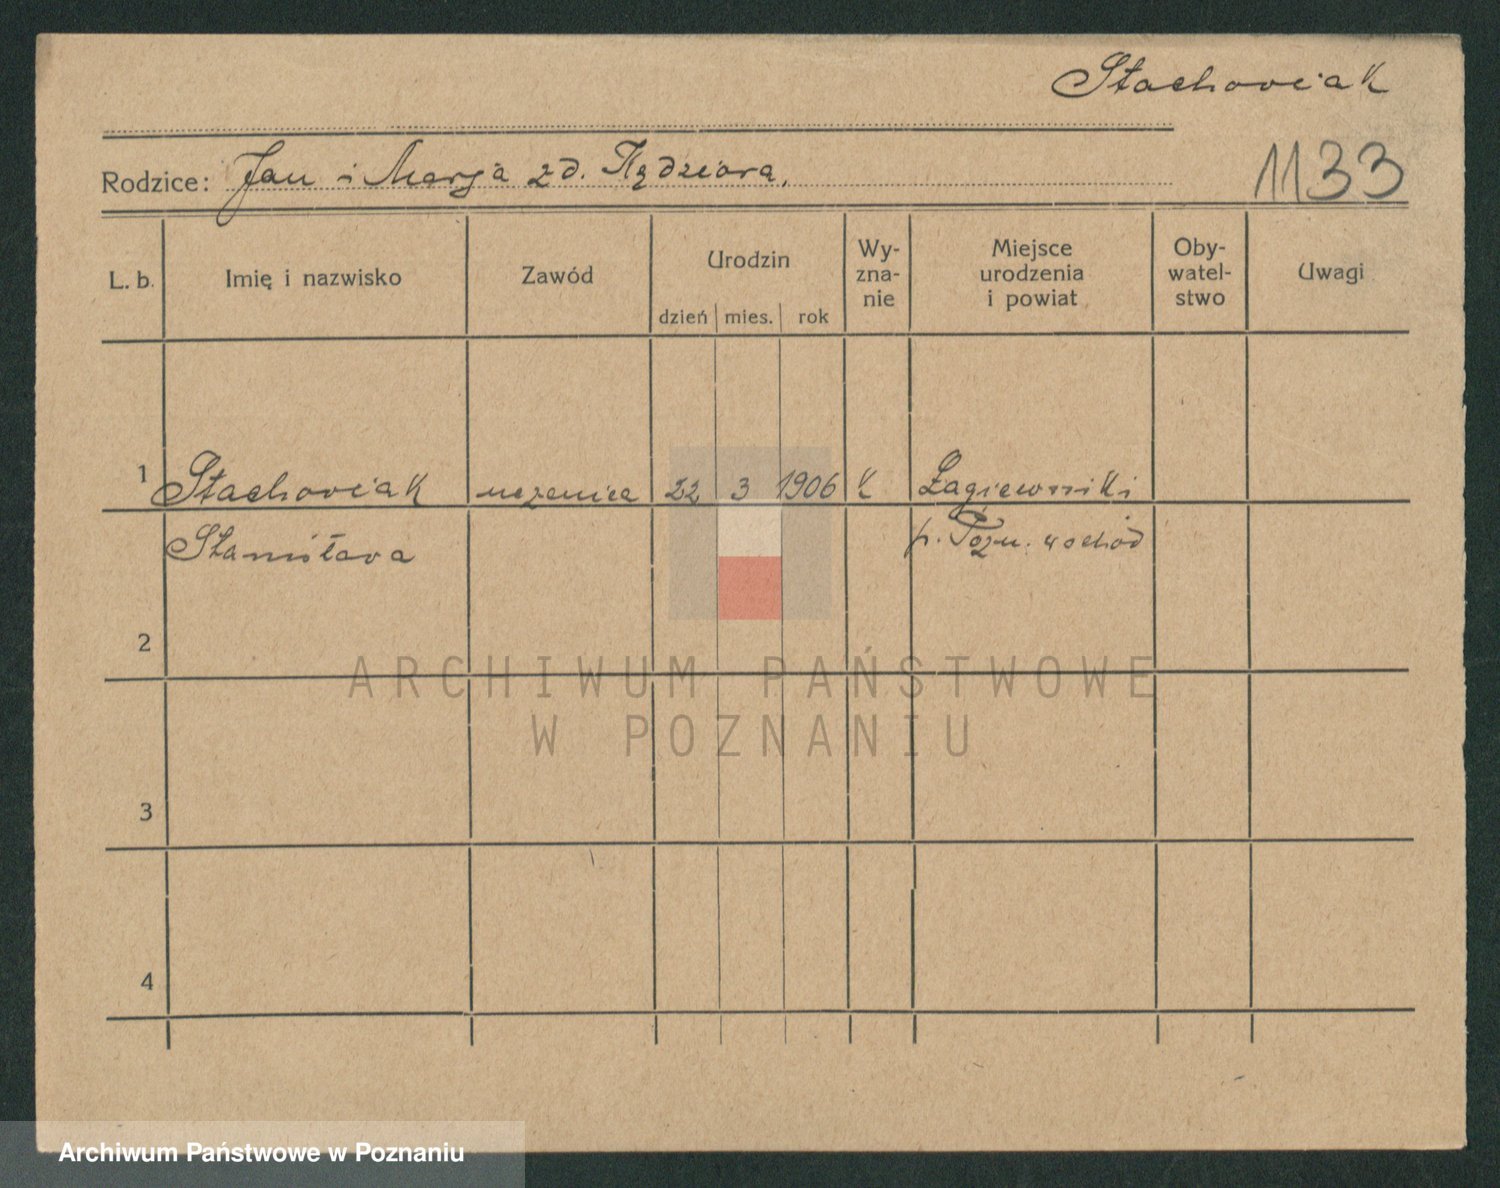 Stachoviak
Rodzice: Jan i Marja zd. Kądziora,
1133
L. b.
Imię i nazwisko
Zawód
Urodzin
dzień mies. rok
Wy-
zna-
nie
Miejsce
urodzenia
i powiat
Oby-
watel-
stwo
Uwagi
1 Stachoviak uczenica 22 3 1906 K Łagiewniki
Stanisłava p. Pozn. wschod
2
3
4
ARCHIWUM PAŃSTWOWE
W POZNANIU
Archiwum Państwowe w Poznaniu